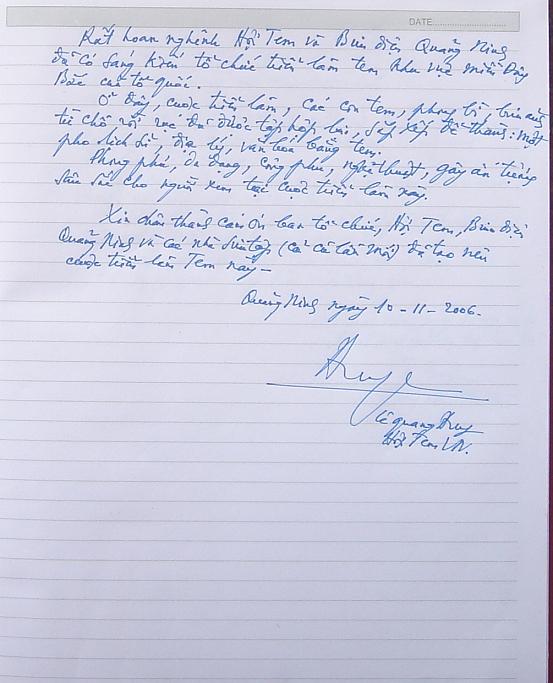 DATE
Rất hoan nghênh Hội Tem và Bưu điện Quảng Ninh
đã có sáng kiến tổ chức triển lãm tem khu vực miền Đông
Bắc của tổ quốc.
Ở đây, cuộc triển lãm, các con tem, phong bì, bưu ảnh
từ chỗ rời rạc đã được tập hợp lại, sắp xếp để thành một
pho lịch sử, địa lý, văn hóa bằng tem.
Phong phú, đa dạng, công phu, nghệ thuật, gây ấn tượng
sâu sắc cho người xem tại cuộc triển lãm này.
Xin chân thành cám ơn ban tổ chức, Hội Tem, Bưu điện
Quảng Ninh và các nhà sưu tập (cả cũ lẫn mới) đã tạo nên
cuộc triển lãm Tem này -
Quảng Ninh ngày 10 - 11 - 2006.
Huy
Lê Quang Huy
Hội Tem VN.